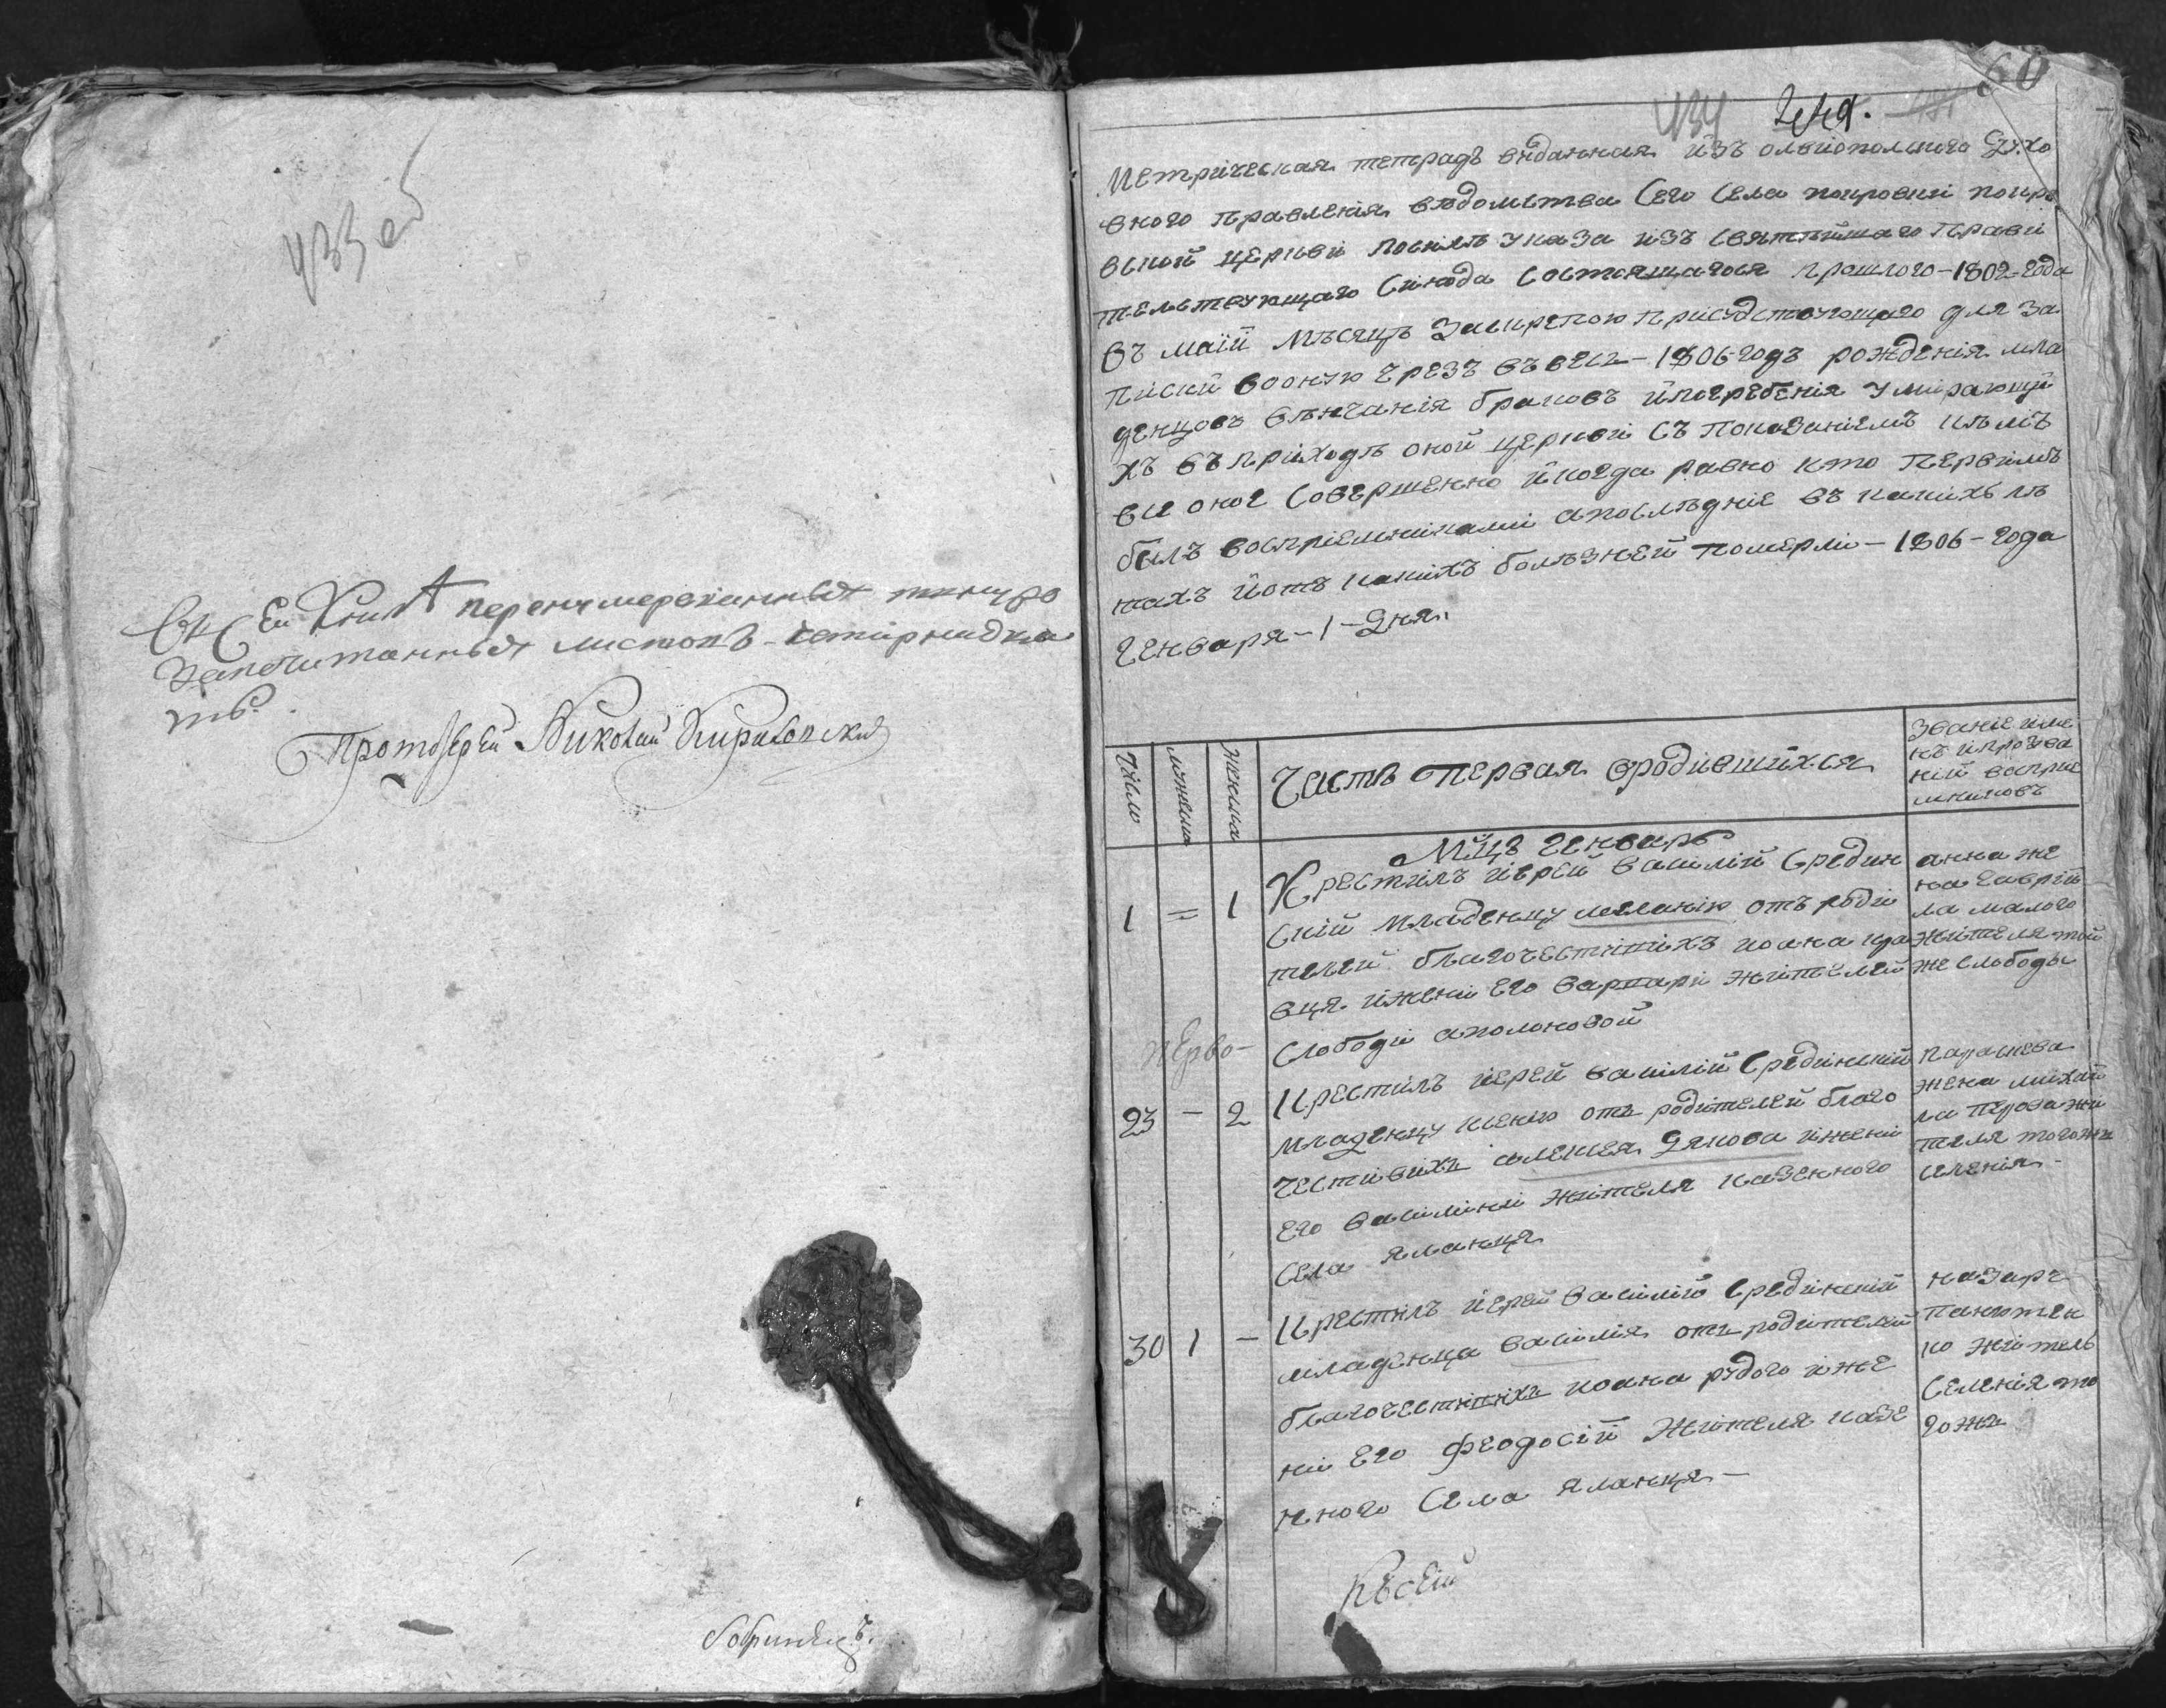 433 об
Въ сей Книге перенумерованныхъ шнуро
запечатанныхъ листовъ четырнадца
ть.
Протоіерей Николай Кириловский
Бобринецъ.
60
434
Метрическая тетрадь виданная изъ олвіополского Духо
вного правленія ведомства Сего Села покровки покро
вской церкви посиле указа изъ святѣйшаго Прави
тельствующаго Синода Состоящагося прошлого - 1802 - года
въ маїи мѣсяцѣ Закрепою присудствующаго для за
писки вооную чрезъ въвесь - 1806 годъ рожденія мла
денцовъ вѣнчанія браковъ и погребенія умирающи
хъ въ приходѣ оной церкви съ показаніемъ кѣмъ
вси оное Совершенно и когда равно кто первимъ
билъ восприемниками апослѣдніе въ какихъ лѣ
тахъ и отъ какихъ болѣзней померли - 1806 - года
Генваря - 1 - Дня.
Число
мужеска
женска
Часть Первая вродившихся
Званіе име
нъ и прозва
ній восприе
мниковъ
Мцъ Генварь
1 = 1
Крестилъ иерей василий Средин
ский младенцу меланию отъ роди
телей благочестивихъ иоана кра
вця и жени его варвари жителей
Слободи аполоновой
анна же
на гаврии
ла малого
жителя той
же слободы
перво-
23 - 2
Крестилъ иерей василий Срединский
младенцу ксению отъ родителей благо
честивихъ алексея Дякова и жени
его василини жителя казенного
Села яланця
Параскева
жена михаи
ла перова жи
теля тогожъ
селенія -
30 1 -
Крестилъ иерей василий Срединский
младенца василия отъ родителей
благочестивихъ иоана рудого и же
ни его феодосий жителя казе
нного Села яланця -
назаръ
Панютен
ко житель
Селенія то
гожъ
Къ сей